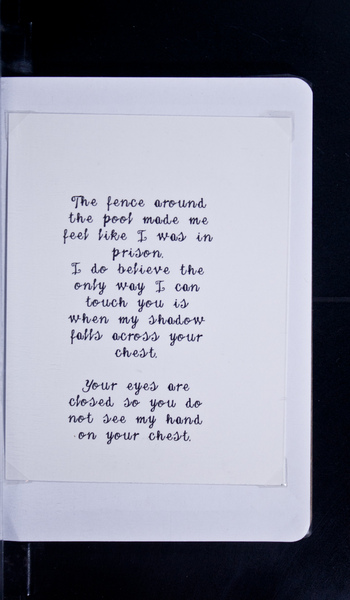 The fence around
the pool made me
feel like I was in
prison.
I do believe the
only way I can
touch you is
when my shadow
falls across your
chest.
Your eyes are
closed so you do
not see my hand
on your chest.